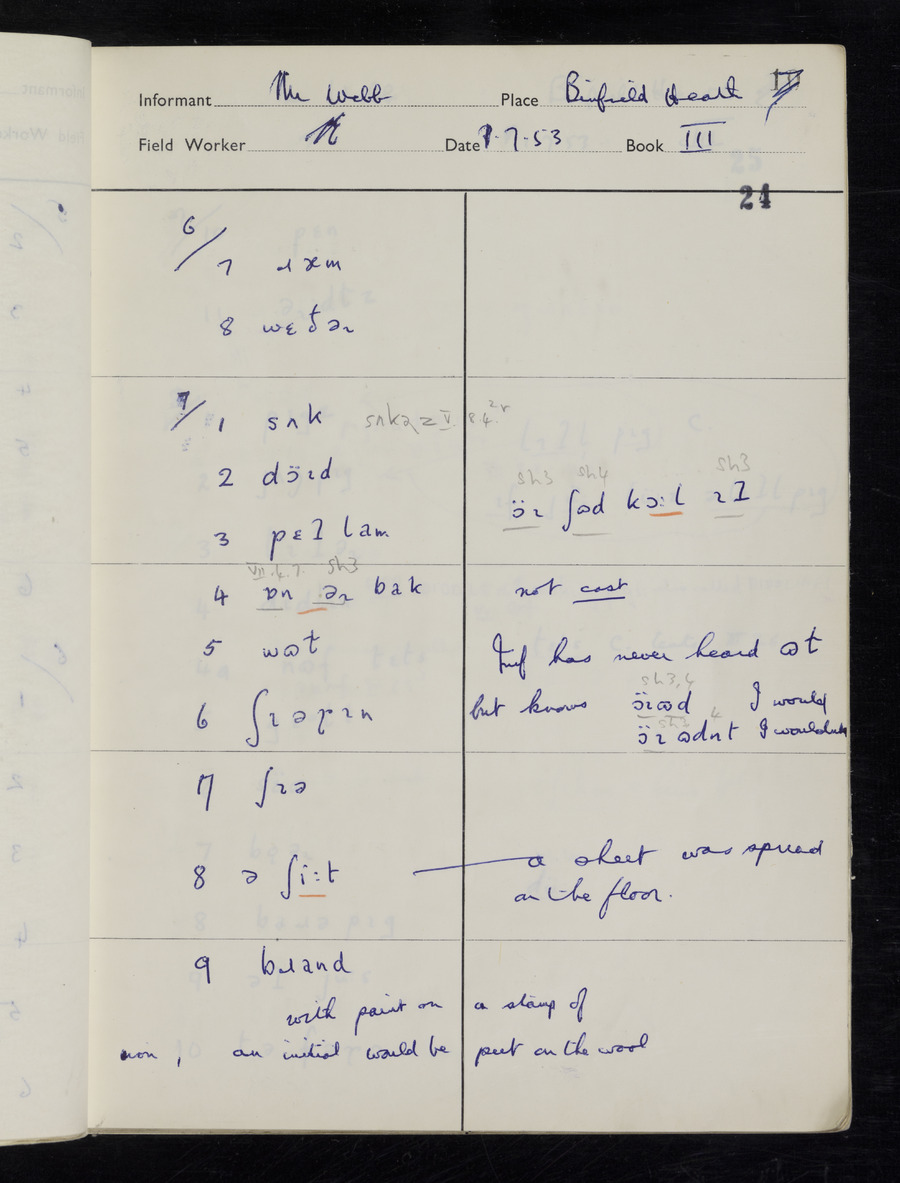 Informant Mr Webb Place Binfield Heath
Field Worker Date 8·7·53 Book III
24
6/7 ɹæm
8 wɛðəɹ
7/1 sʌk
2 dɔ̈ɪd
3 pɛɪ lam
ɔ̈ɪ ʃʊd kɔ:l ɪɪ
sh3 sh4 sh3
VII.4.7. sh3
4 ɒn əɪ bak not cast
5 wʊt Inf has never heard ʊt
sh3,4
but knows ɔ̈ɪʊd I would
sh3 4
6 ʃɪəɪn
ɔ̈ɪ ʊdnt I wouldn't
7 ʃɪə
8 ə ʃi:t a sheet was spread
on the floor.
9 bɹand
with paint on a stamp of
iron, an initial would be put on the wool